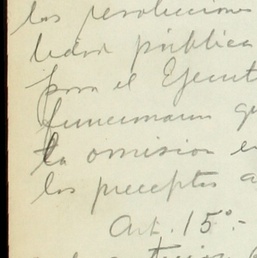 las resoluciones
lidad pública
por el Ejecut
funcionarios q
la omision e
los preceptos a
Art. 15º.-